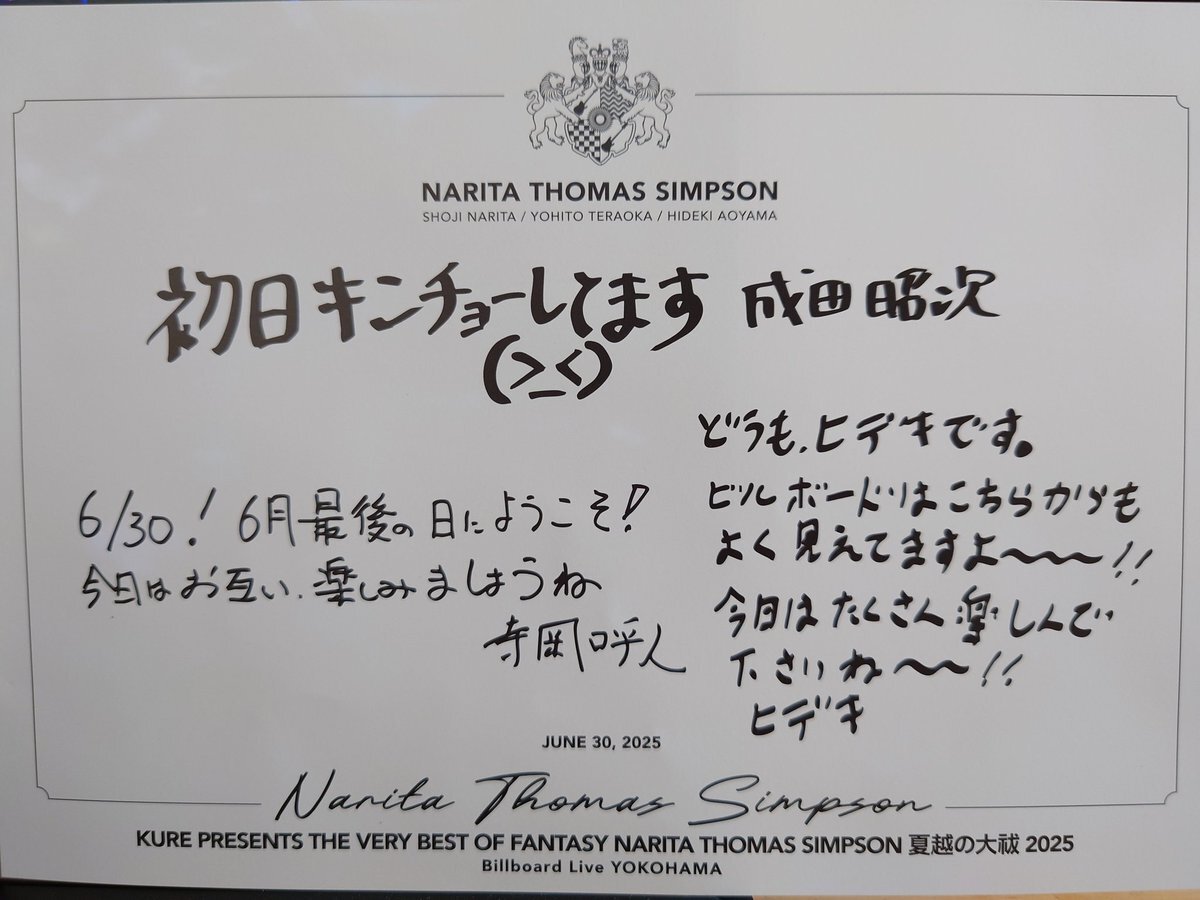 NARITA THOMAS SIMPSON
SHOJI NARITA / YOHITO TERAOKA / HIDEKI AOYAMA
初日キンチョーしてます 成田昭次
(>_<)
6/30! 6月最後の日にようこそ!
今日はお互い、楽しみましょうね
寺岡呼人
どうも、ヒデキです。
ビルボードはこちらからも
よく見えてますよ〜〜〜!!
今日はたくさん楽しんで
下さいね〜〜!!
ヒデキ
JUNE 30, 2025
Narita Thomas Simpson
KURE PRESENTS THE VERY BEST OF FANTASY NARITA THOMAS SIMPSON 夏越の大祓 2025
Billboard Live YOKOHAMA